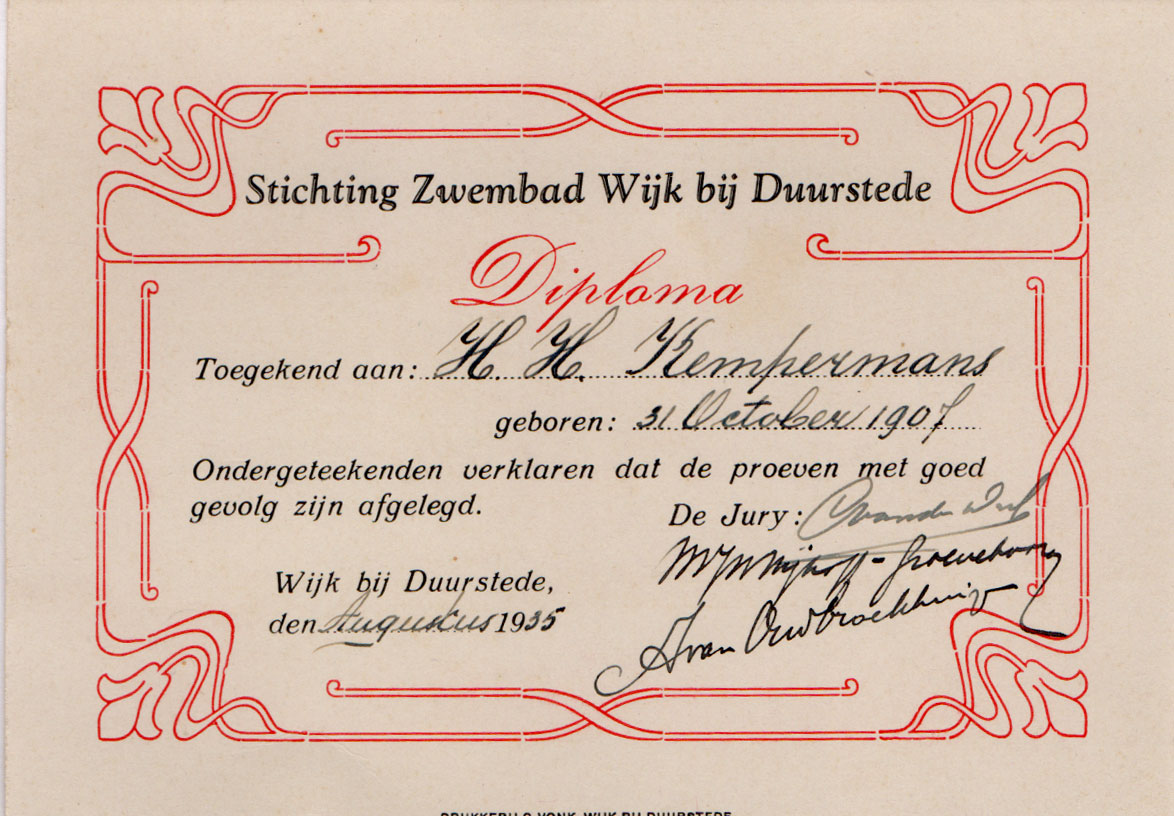 Stichting Zwembad Wijk bij Duurstede
Diploma
Toegekend aan: H. H. Kempermans
geboren: 31 October 1907
Ondergeteekenden verklaren dat de proeven met goed
gevolg zijn afgelegd.
De Jury:
Wijk bij Duurstede,
den Augustus 1935
DRUKKERIJ G. VONK, WIJK BIJ DUURSTEDE